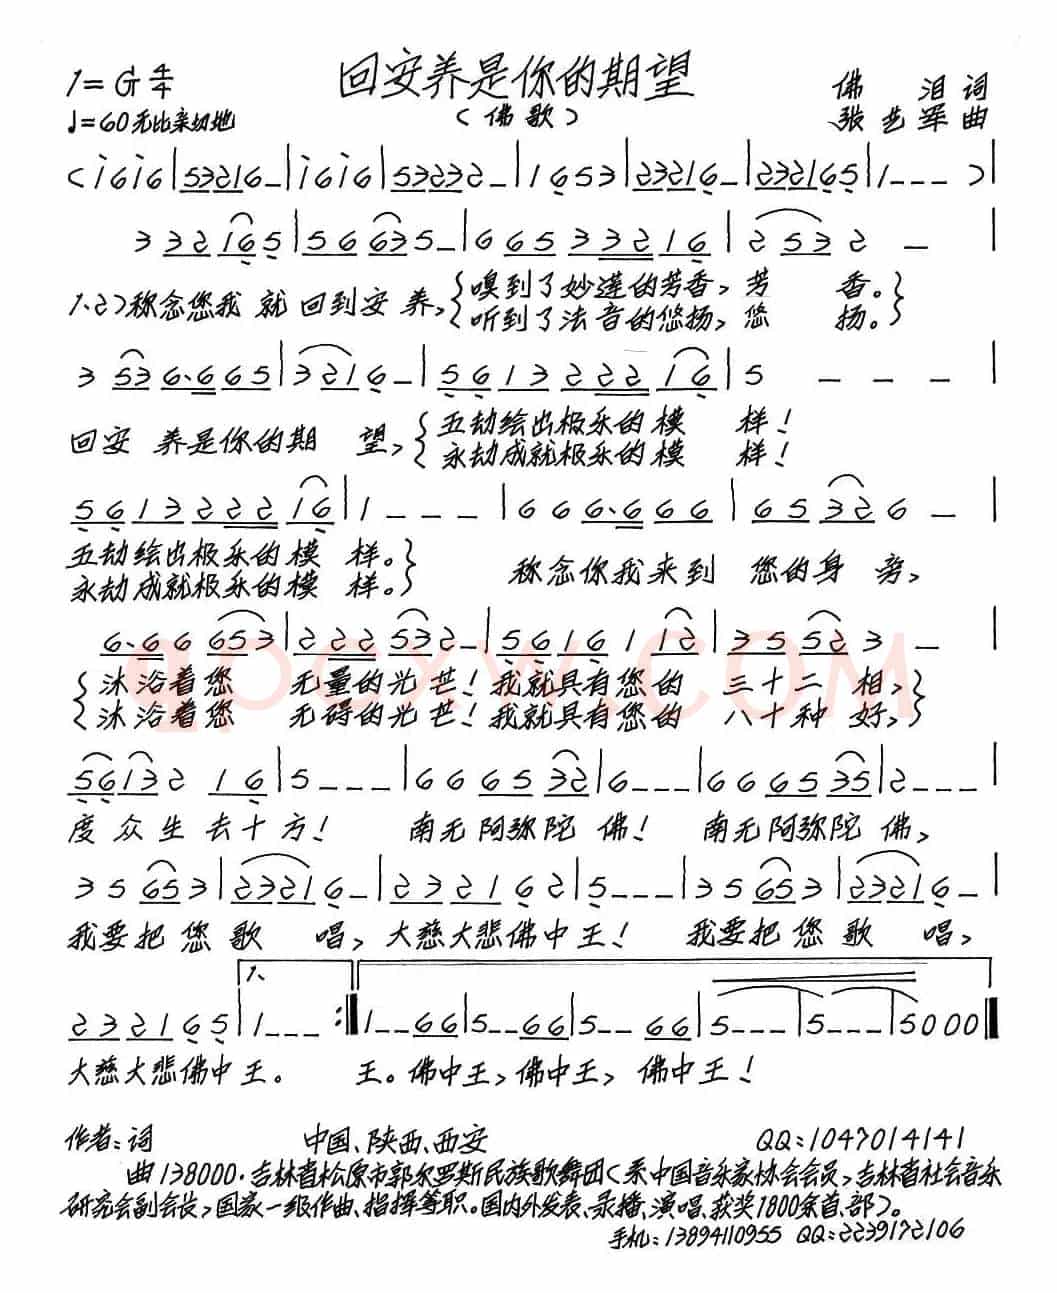 回安养是你的期望
1=G 4/4
(佛歌)
佛泪词
♩=60 无比亲切地
张艺军曲
(i6i6|53216-|i6i6|53232-|1653|23216-|232165|1---)|
332165|56635-|66533216|2532-|
1.2)称念您我就回到安养,{嗅到了妙莲的芳香,芳香。}
听到了法音的悠扬,悠扬。}
3536·665|3216-|561322216|5---|
回安养是你的期望,{五劫绘出极乐的模样!
永劫成就极乐的模样!
561322216|1---|666·666|65326-|
五劫绘出极乐的模样。}
永劫成就极乐的模样。}
称念你我来到您的身旁,
6·66653|222532-|5616112|35523-|
{沐浴着您无量的光芒!我就具有您的三十二相,}
{沐浴着您无碍的光芒!我就具有您的八十种好,}
qpcxw.com
5613216|5---|666532|6---|666535|2---|
度众生去十方!南无阿弥陀佛!南无阿弥陀佛,
35653|23216-|232162|5---|35653|23216-|
我要把您歌唱,大慈大悲佛中王!我要把您歌唱,
1.
232165|1---:‖1--66|5--66|5--66|5---|5---|5000‖
大慈大悲佛中王。王。佛中王,佛中王,佛中王!
作者:词 中国、陕西、西安 QQ:1047014141
曲138000.吉林省松原市郭尔罗斯民族歌舞团(系中国音乐家协会会员,吉林省社会音乐
研究会副会长,国家一级作曲、指挥等职。国内外发表、录播、演唱、获奖1800余首、部)。
手机:13894110955 QQ:2239172106